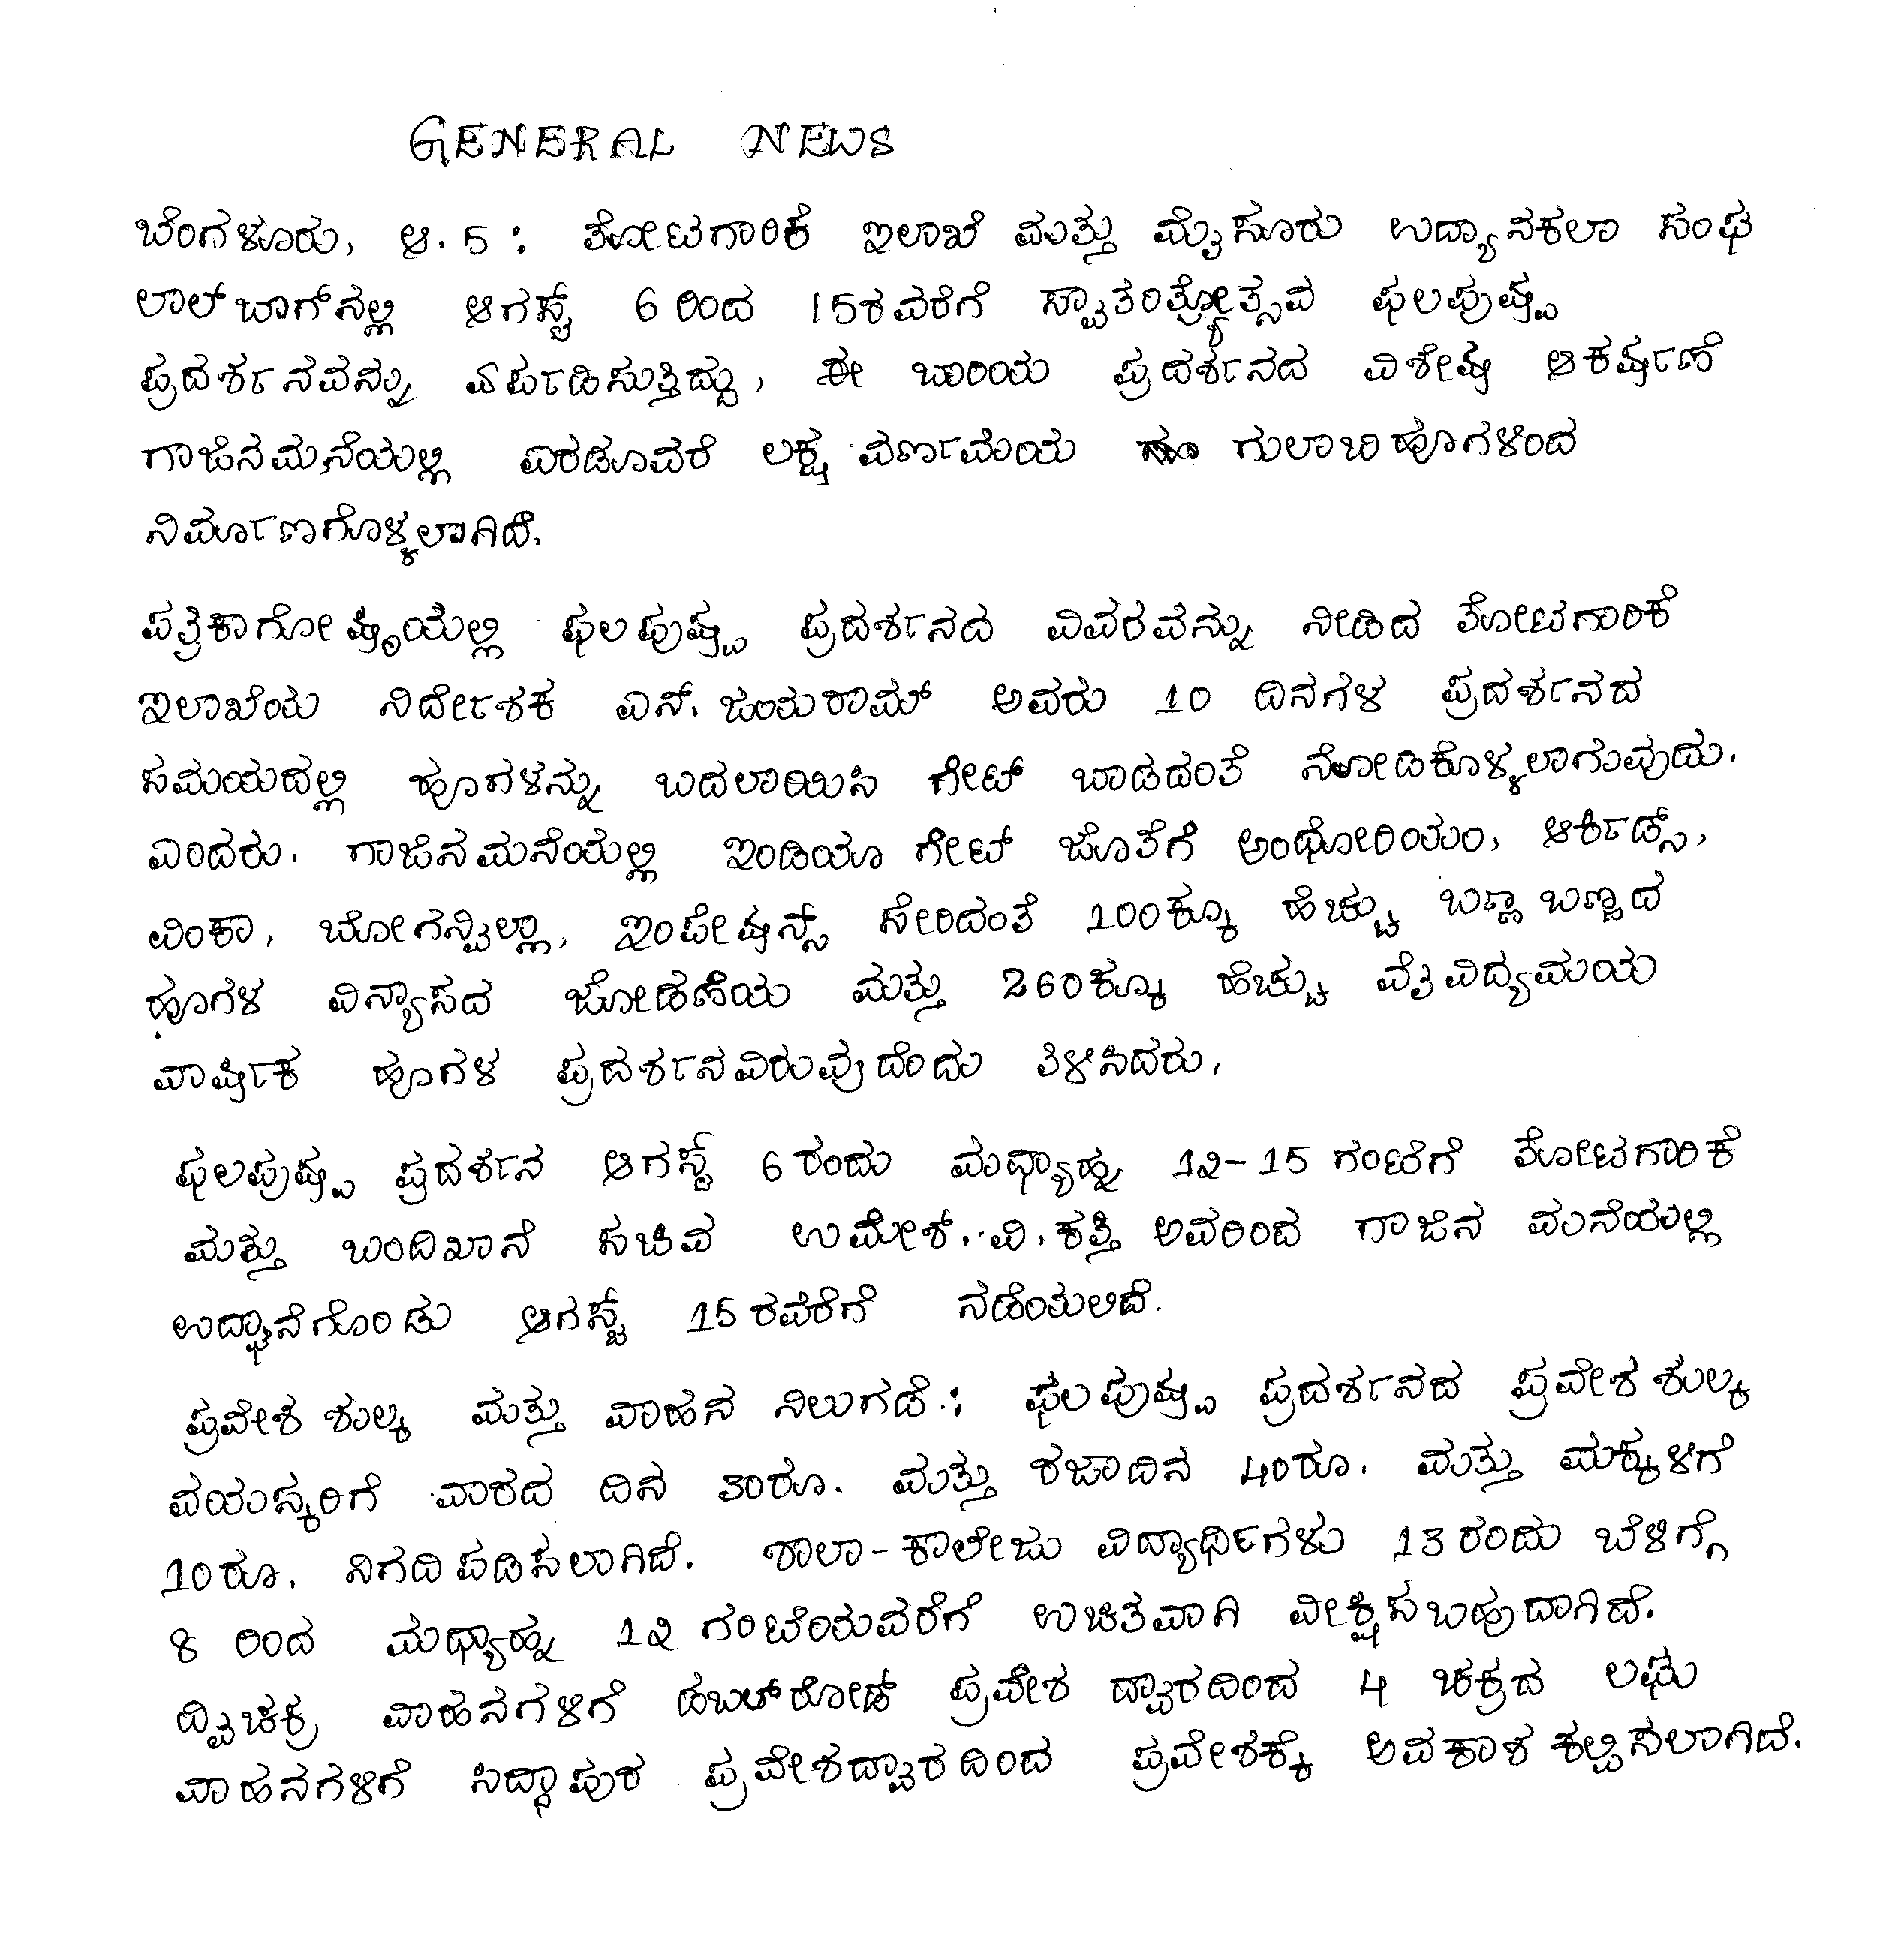 GENERAL NEWS
ಬೆಂಗಳೂರು, ಆ. 5 : ತೋಟಗಾರಿಕೆ ಇಲಾಖೆ ಮತ್ತು ಮೈಸೂರು ಉದ್ಯಾನಕಲಾ ಸಂಘ
ಲಾಲ್‌ಬಾಗ್‌ನಲ್ಲಿ ಆಗಸ್ಟ್ 6 ರಿಂದ 15ರವರೆಗೆ ಸ್ವಾತಂತ್ರ್ಯೋತ್ಸವ ಫಲಪುಷ್ಪ
ಪ್ರದರ್ಶನವನ್ನು ಏರ್ಪಡಿಸುತ್ತಿದ್ದು, ಈ ಬಾರಿಯ ಪ್ರದರ್ಶನದ ವಿಶೇಷ ಆಕರ್ಷಣೆ
ಗಾಜಿನಮನೆಯಲ್ಲಿ ಎರಡೂವರೆ ಲಕ್ಷ ವರ್ಣಮಯ ಗುಲಾಬಿಹೂಗಳಿಂದ
ನಿರ್ಮಾಣಗೊಳ್ಳಲಾಗಿದೆ.
ಪತ್ರಿಕಾಗೋಷ್ಠಿಯಲ್ಲಿ ಫಲಪುಷ್ಪ ಪ್ರದರ್ಶನದ ವಿವರವನ್ನು ನೀಡಿದ ತೋಟಗಾರಿಕೆ
ಇಲಾಖೆಯ ನಿರ್ದೇಶಕ ಎನ್. ಜಯರಾಮ್ ಅವರು 10 ದಿನಗಳ ಪ್ರದರ್ಶನದ
ಸಮಯದಲ್ಲಿ ಹೂಗಳನ್ನು ಬದಲಾಯಿಸಿ ಗೇಟ್ ಬಾಡದಂತೆ ನೋಡಿಕೊಳ್ಳಲಾಗುವುದು.
ಎಂದರು. ಗಾಜಿನಮನೆಯಲ್ಲಿ ಇಂಡಿಯಾ ಗೇಟ್ ಜೊತೆಗೆ ಅಂಥೋರಿಯಂ, ಆರ್ಕಿಡ್ಸ್,
ವಿಂಕಾ, ಬೋಗನ್ವಿಲ್ಲಾ, ಇಂಪೇಷನ್ಸ್ ಸೇರಿದಂತೆ 100ಕ್ಕೂ ಹೆಚ್ಚು ಬಣ್ಣಬಣ್ಣದ
ಹೂಗಳ ವಿನ್ಯಾಸದ ಜೋಡಣೆಯ ಮತ್ತು 260ಕ್ಕೂ ಹೆಚ್ಚು ವೈವಿಧ್ಯಮಯ
ವಾರ್ಷಿಕ ಹೂಗಳ ಪ್ರದರ್ಶನವಿರುವುದೆಂದು ತಿಳಿಸಿದರು.
ಫಲಪುಷ್ಪ ಪ್ರದರ್ಶನ ಆಗಸ್ಟ್ 6 ರಂದು ಮಧ್ಯಾಹ್ನ 12-15 ಗಂಟೆಗೆ ತೋಟಗಾರಿಕೆ
ಮತ್ತು ಬಂದಿಖಾನೆ ಸಚಿವ ಉಮೇಶ್. ವಿ. ಕತ್ತಿ ಅವರಿಂದ ಗಾಜಿನ ಮನೆಯಲ್ಲಿ
ಉದ್ಘಾನೆಗೊಂಡು ಆಗಸ್ಟ್ 15ರವರೆಗೆ ನಡೆಯಲಿದೆ.
ಪ್ರವೇಶ ಶುಲ್ಕ ಮತ್ತು ವಾಹನ ನಿಲುಗಡೆ : ಫಲಪುಷ್ಪ ಪ್ರದರ್ಶನದ ಪ್ರವೇಶ ಶುಲ್ಕ
ವಯಸ್ಕರಿಗೆ ವಾರದ ದಿನ 30ರೂ. ಮತ್ತು ರಜಾದಿನ 40ರೂ. ಮತ್ತು ಮಕ್ಕಳಿಗೆ
10ರೂ. ನಿಗದಿಪಡಿಸಲಾಗಿದೆ. ಶಾಲಾ-ಕಾಲೇಜು ವಿದ್ಯಾರ್ಥಿಗಳು 13ರಂದು ಬೆಳಿಗ್ಗೆ
8 ರಿಂದ ಮಧ್ಯಾಹ್ನ 12 ಗಂಟೆಯವರೆಗೆ ಉಚಿತವಾಗಿ ವೀಕ್ಷಿಸಬಹುದಾಗಿದೆ.
ದ್ವಿಚಕ್ರ ವಾಹನಗಳಿಗೆ ಡಬಲ್‌ರೋಡ್ ಪ್ರವೇಶ ದ್ವಾರದಿಂದ 4 ಚಕ್ರದ ಲಘು
ವಾಹನಗಳಿಗೆ ಸಿದ್ಧಾಪುರ ಪ್ರವೇಶದ್ವಾರದಿಂದ ಪ್ರವೇಶಕ್ಕೆ ಅವಕಾಶ ಕಲ್ಪಿಸಲಾಗಿದೆ.